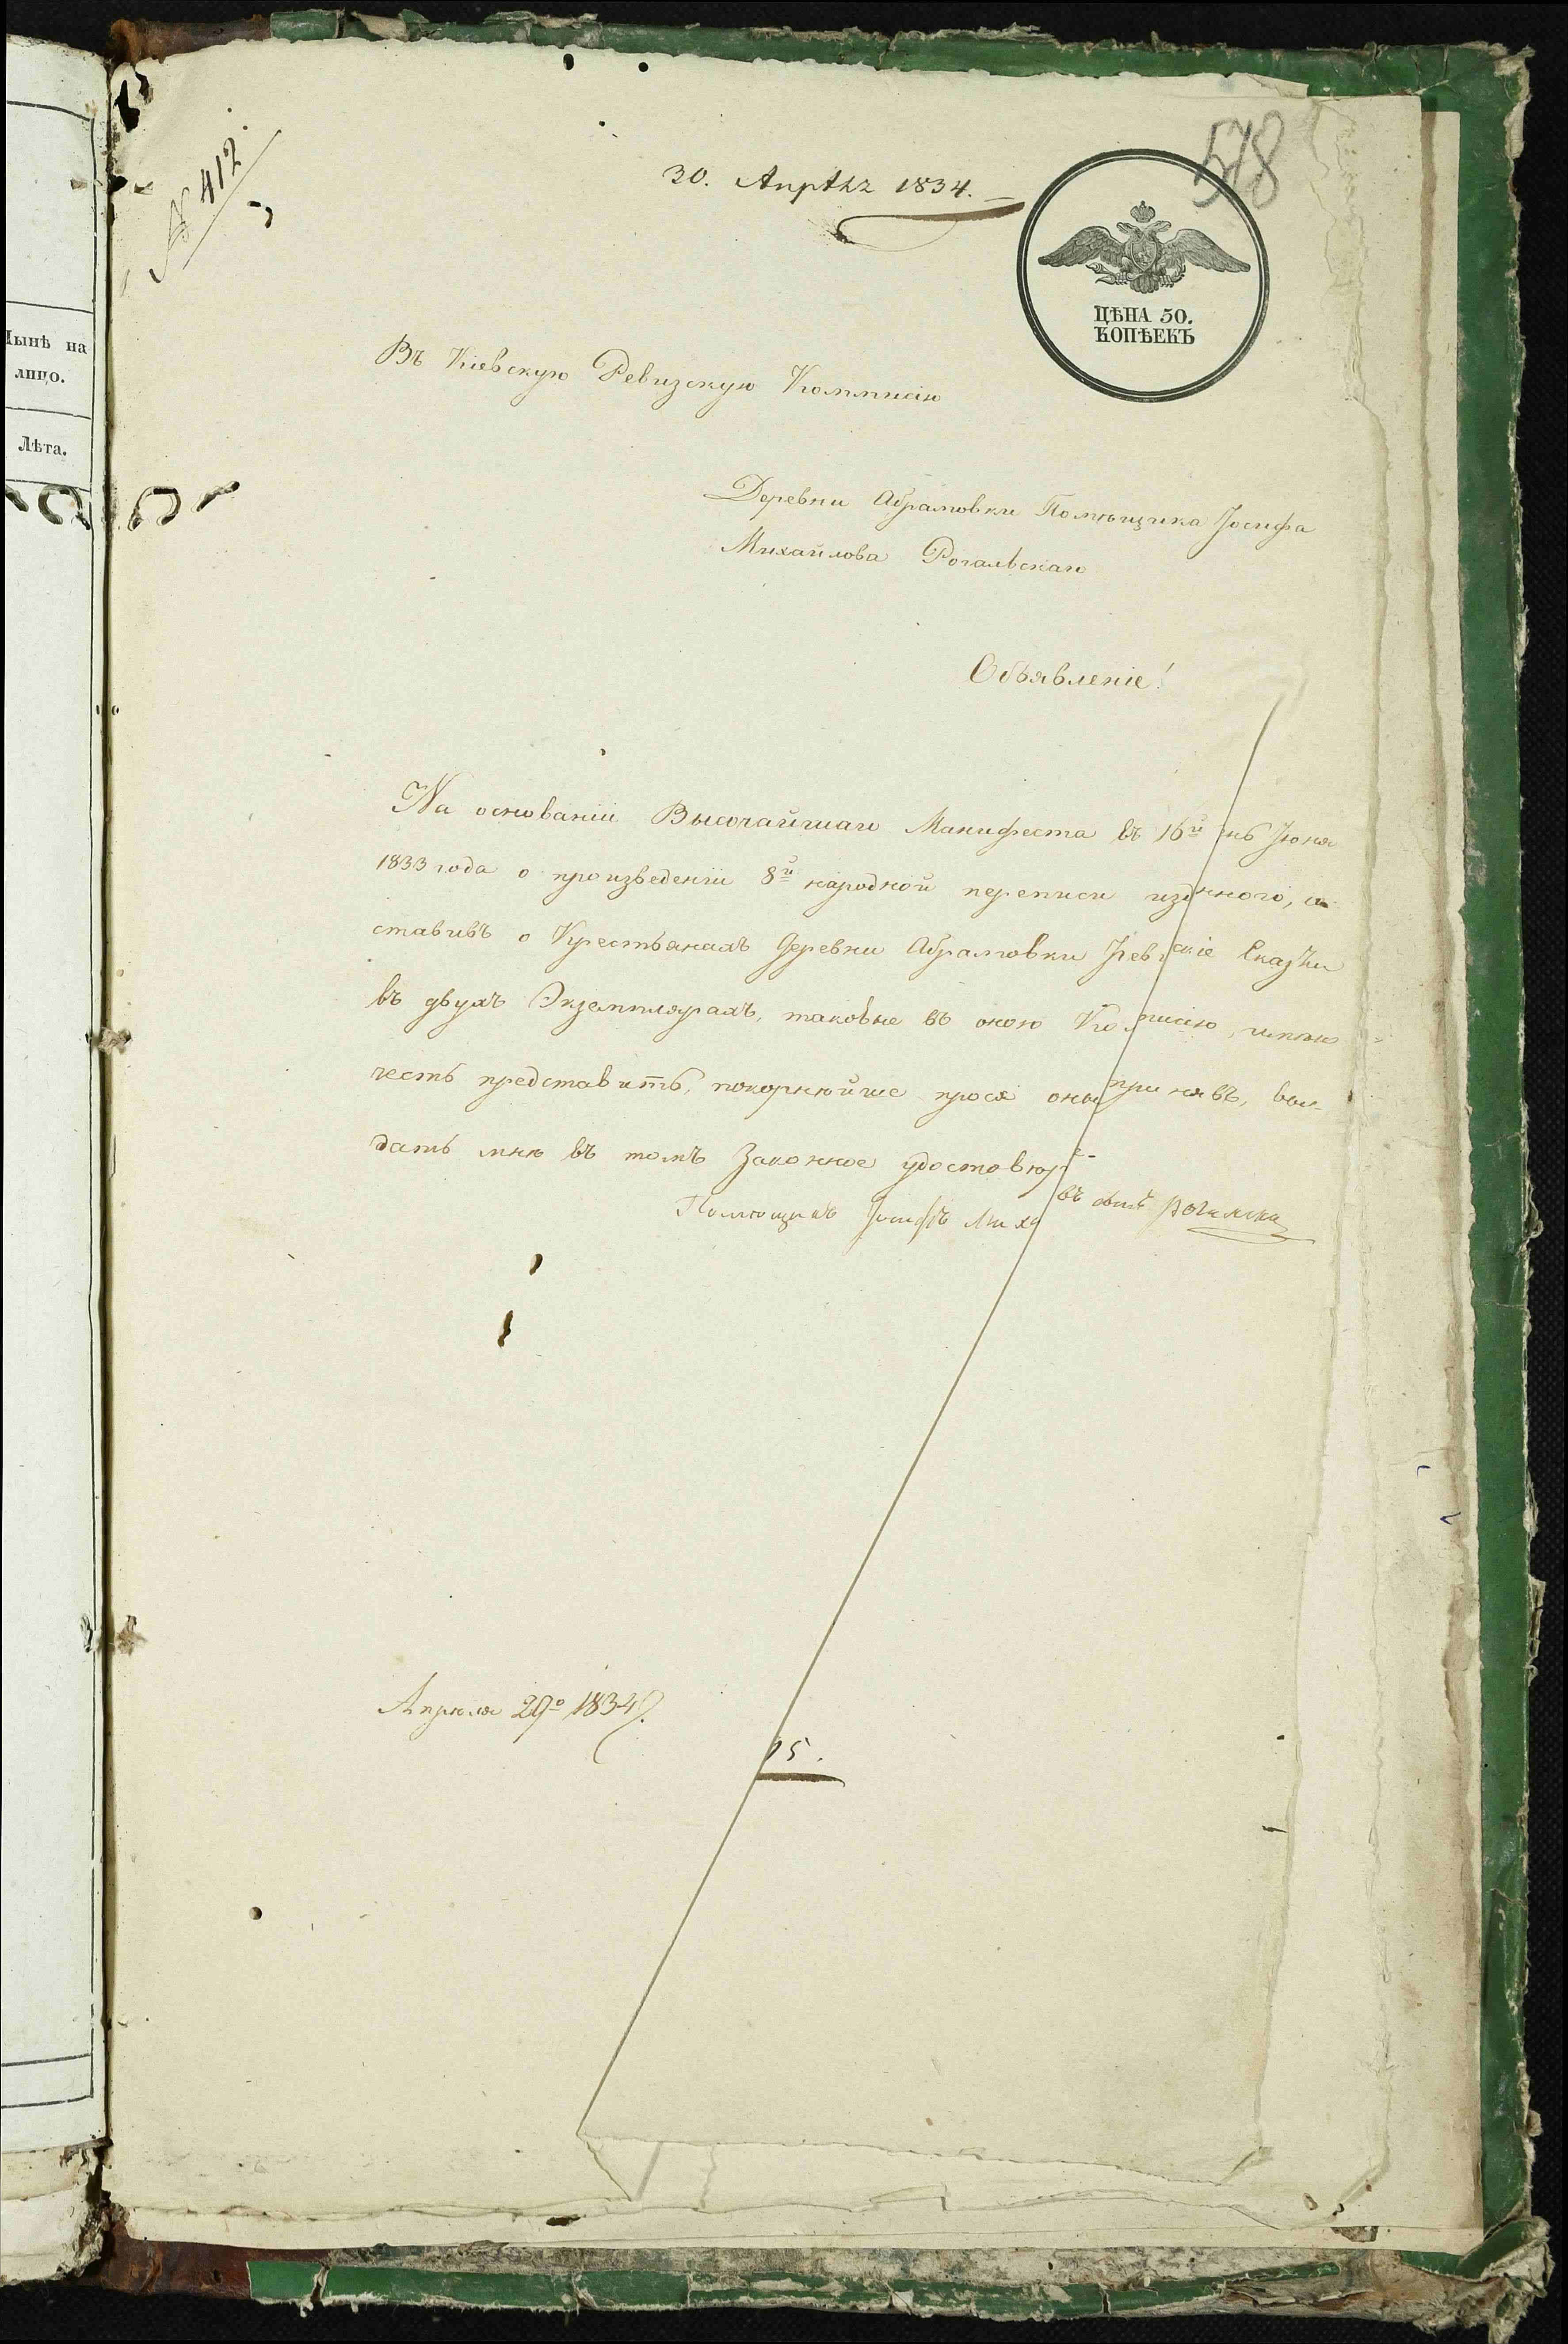 Нынѣ на
лицо.
Лѣта.
№ 412.
30. Апрѣлѧ 1834.
578
ЦѢНА 50.
КОПѢЕКЪ
Въ Кіевскую Ревизскую Коммисію
Деревни Абрамовки Помѣщика Іосифа
Михайлова Рогальскаго
Объявленіе!
На основаніи Высочайшаго Манифеста въ 16й Іюня
1833 года о произведеніи 8й народной переписи изданного, со
ставивъ о Крестьянахъ Деревни Абрамовки Ревизскіе Сказки
въ двухъ Экземплярахъ, таковые въ оною Коммисію имѣю
честь представить, покорнѣйше прося оные принявъ, вы-
дать мнѣ въ томъ Законное удостовѣр
Помѣщикъ Іосифъ Миха въ сынъ
Апрѣля 29о 1834
15.